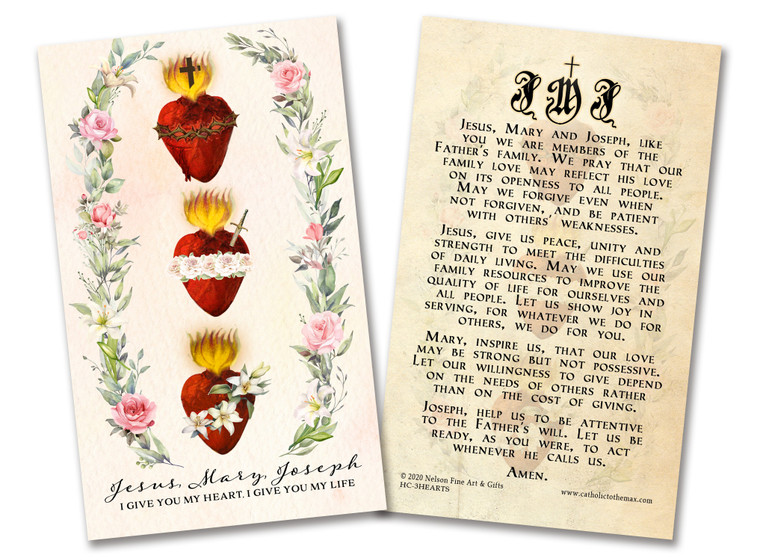 Jesus, Mary, Joseph
I GIVE YOU MY HEART. I GIVE YOU MY LIFE
J M J
JESUS, MARY AND JOSEPH, LIKE
YOU WE ARE MEMBERS OF THE
FATHER'S FAMILY. WE PRAY THAT OUR
FAMILY LOVE MAY REFLECT HIS LOVE
ON ITS OPENNESS TO ALL PEOPLE.
MAY WE FORGIVE EVEN WHEN
NOT FORGIVEN, AND BE PATIENT
WITH OTHERS' WEAKNESSES.
JESUS, GIVE US PEACE, UNITY AND
STRENGTH TO MEET THE DIFFICULTIES
OF DAILY LIVING. MAY WE USE OUR
FAMILY RESOURCES TO IMPROVE THE
QUALITY OF LIFE FOR OURSELVES AND
ALL PEOPLE. LET US SHOW JOY IN
SERVING, FOR WHATEVER WE DO FOR
OTHERS, WE DO FOR YOU.
MARY, INSPIRE US, THAT OUR LOVE
MAY BE STRONG BUT NOT POSSESSIVE.
LET OUR WILLINGNESS TO GIVE DEPEND
ON THE NEEDS OF OTHERS RATHER
THAN ON THE COST OF GIVING.
JOSEPH, HELP US TO BE ATTENTIVE
TO THE FATHER'S WILL. LET US BE
READY, AS YOU WERE, TO ACT
WHENEVER HE CALLS US.
AMEN.
© 2020 Nelson Fine Art & Gifts
HC-3HEARTS
www.catholictothemax.com